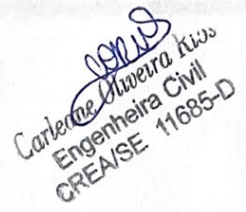 Carleane Oliveira Rios
Engenheira Civil
CREA/SE 11685-D